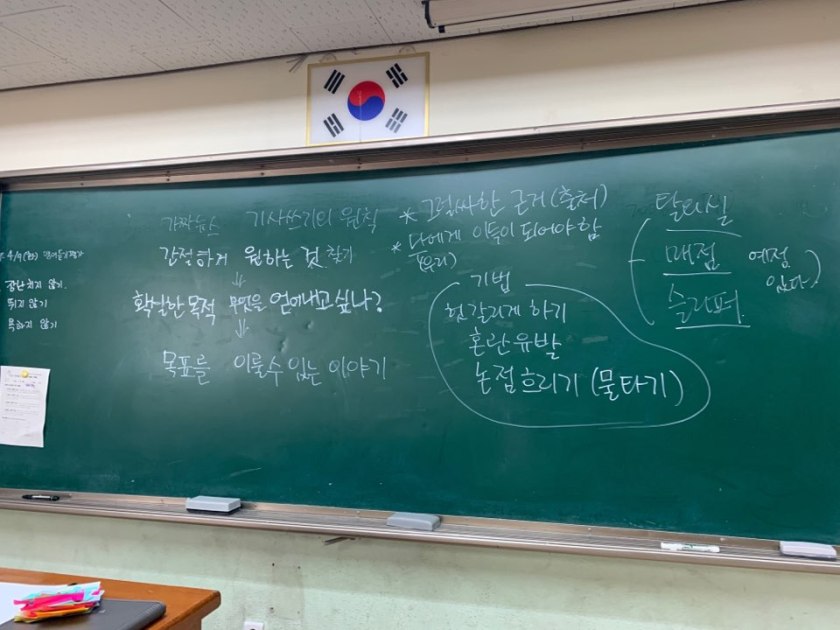 장난치지 않기.
뛰지 않기
욕하지 않기
가짜뉴스 기사쓰기의 원칙
간절하게 원하는 것 찾기
확실한 목적 무엇을 얻어내고 싶나?
목표를 이룰수 있는 이야기
* 그럴싸한 근거(출처)
* 나에게 이득이 되어야 함
(우리)
기법
헷갈리게 하기
혼란 유발
논점 흐리기 (물타기)
탈의실
매점
슬리퍼
예정
있다